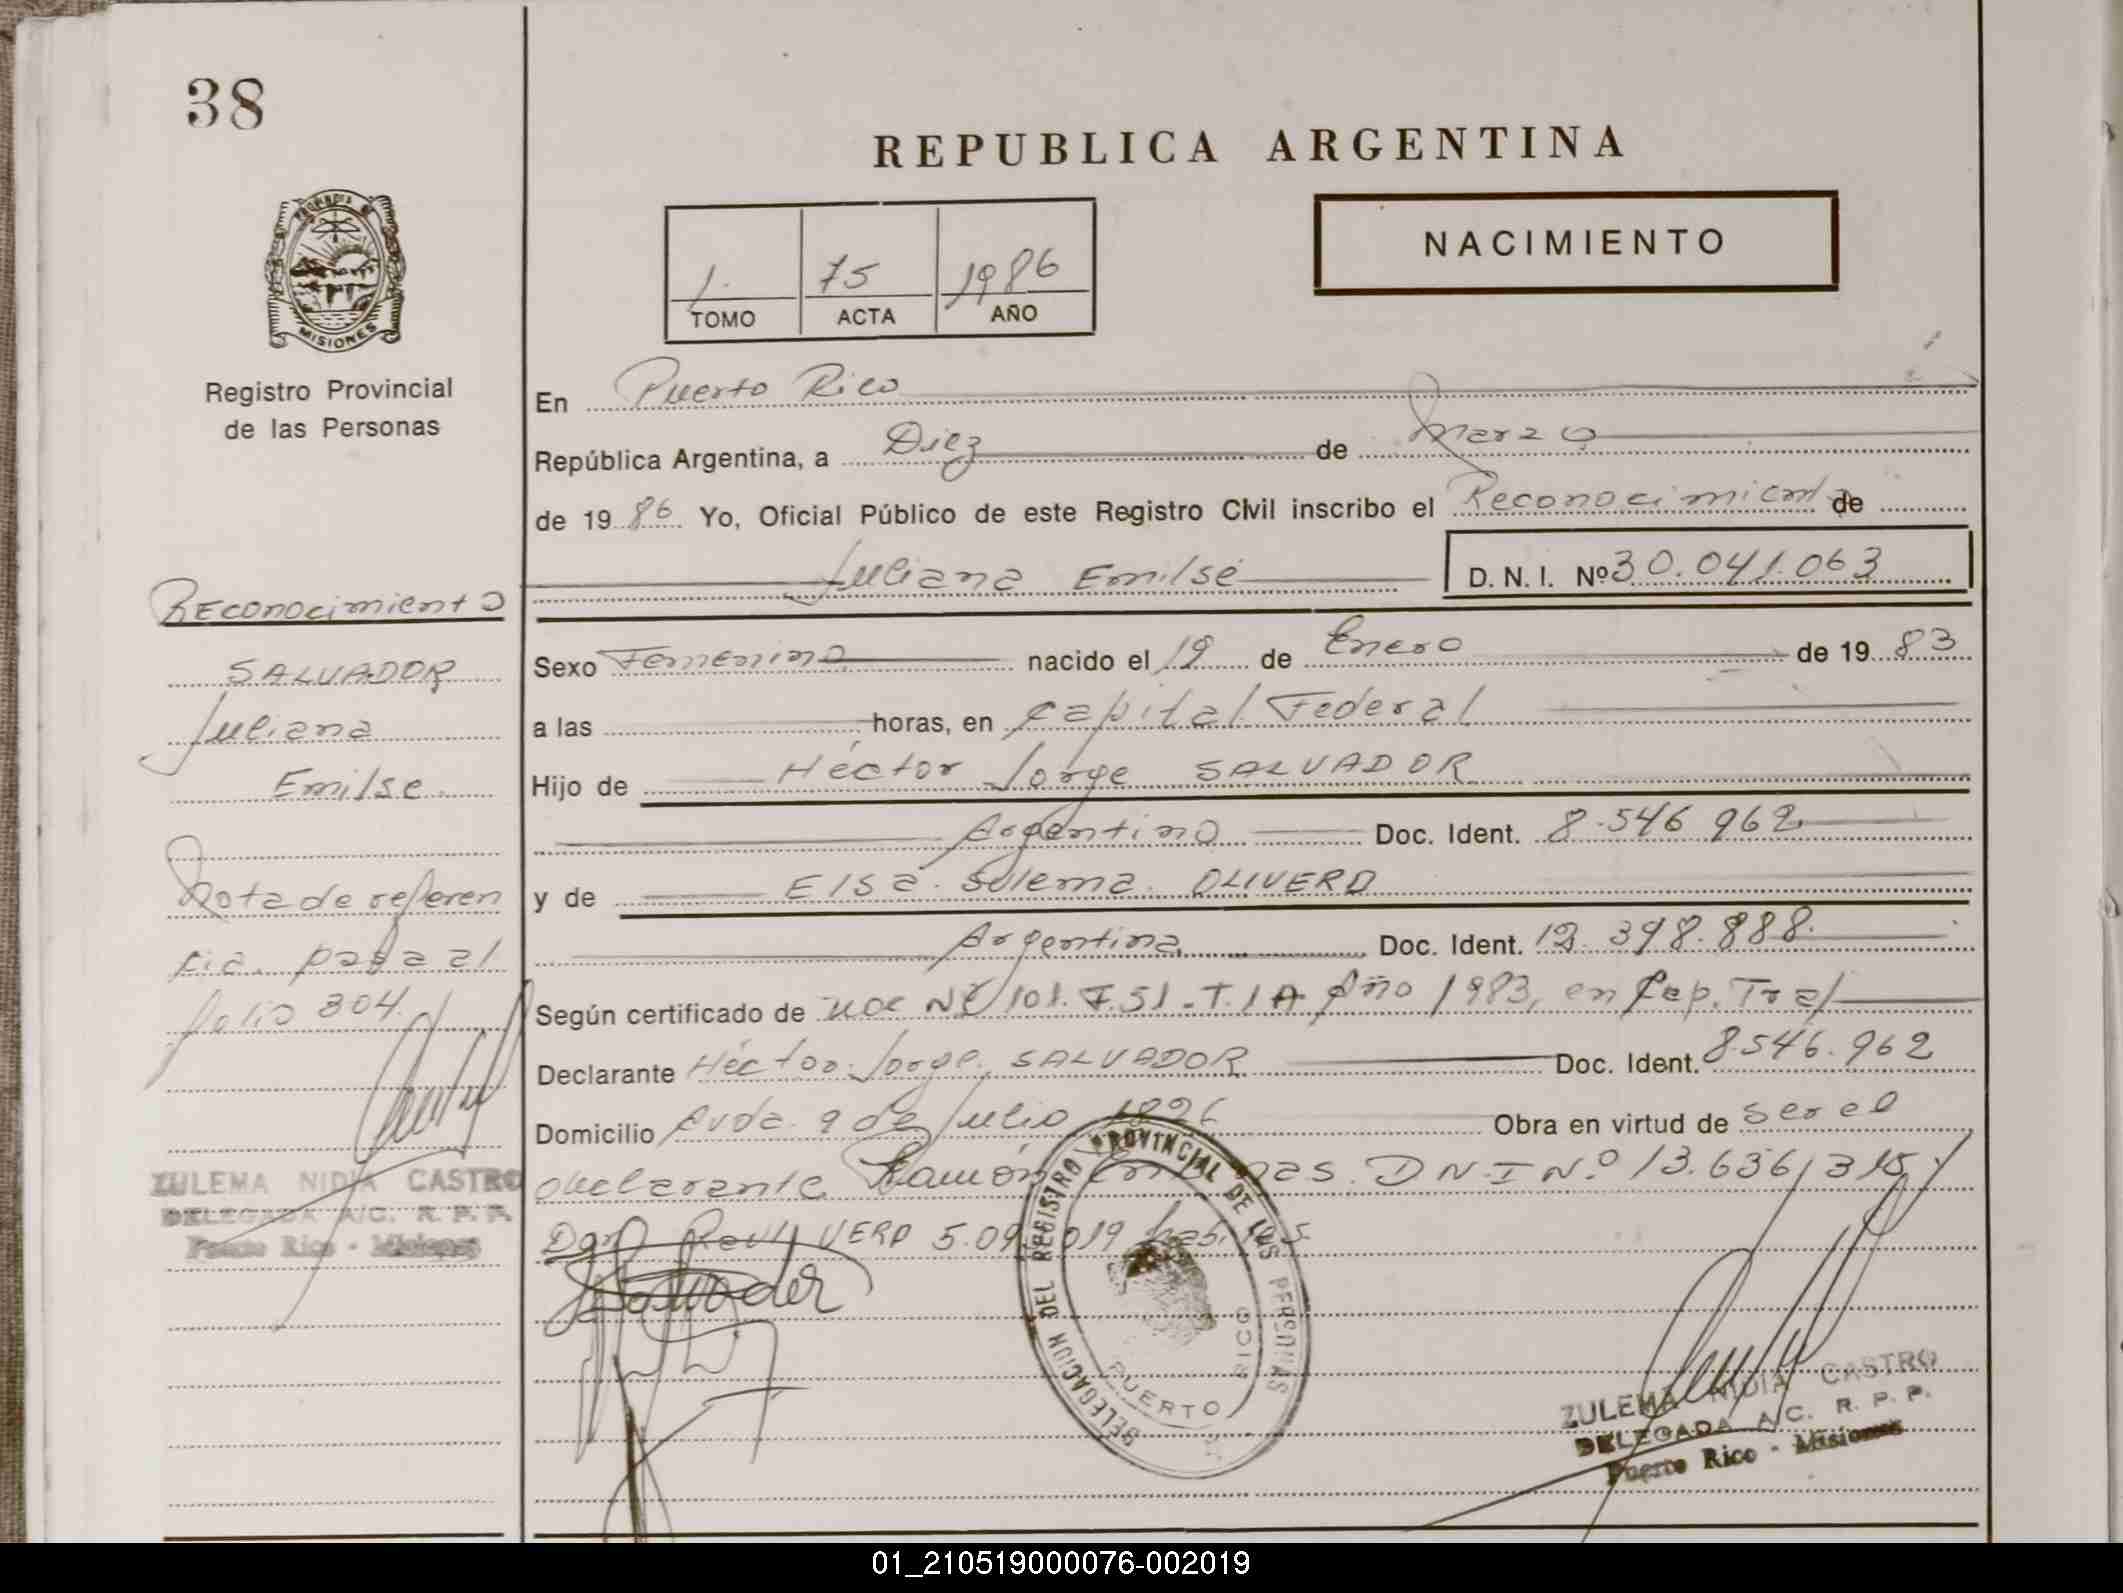 38
REPUBLICA ARGENTINA
NACIMIENTO
1. 75 1986
TOMO ACTA AÑO
MISIONES
Registro Provincial
de las Personas
En Puerto Rico
República Argentina, a Diez de Marzo
de 1986 Yo, Oficial Público de este Registro Civil inscribo el Reconocimiento de
Juliana Emilse D. N. I. Nº 30.041.063
Reconocimiento
SALVADOR
Juliana
Emilse
Nota de referen
cia pasa al
folio 304.
ZULEMA NIDIA CASTRO
DELEGADA A/C. R. P. P.
Puerto Rico - Misiones
Sexo Femenino nacido el 19 de Enero de 1983
a las horas, en Capital Federal
Hijo de Héctor Jorge SALVADOR
Argentino Doc. Ident. 8.546 962
y de Elsa Sulema OLIVERA
Argentina Doc. Ident. 12.398.888.
Según certificado de 101. F.51 - T.1A Año 1983, en Cap.
Declarante Héctor Jorge SALVADOR Doc. Ident. 8.546.962
Domicilio Avda. 9 de Julio 1896 Obra en virtud de ser el
declarante Ramón DNI Nº 13.636,315
5.09
Salvador
DELEGACION DEL REGISTRO PROVINCIAL DE LAS PERSONAS
PUERTO RICO
ZULEMA NIDIA CASTRO
DELEGADA A/C. R. P. P.
Puerto Rico - Misiones
01_210519000076-002019